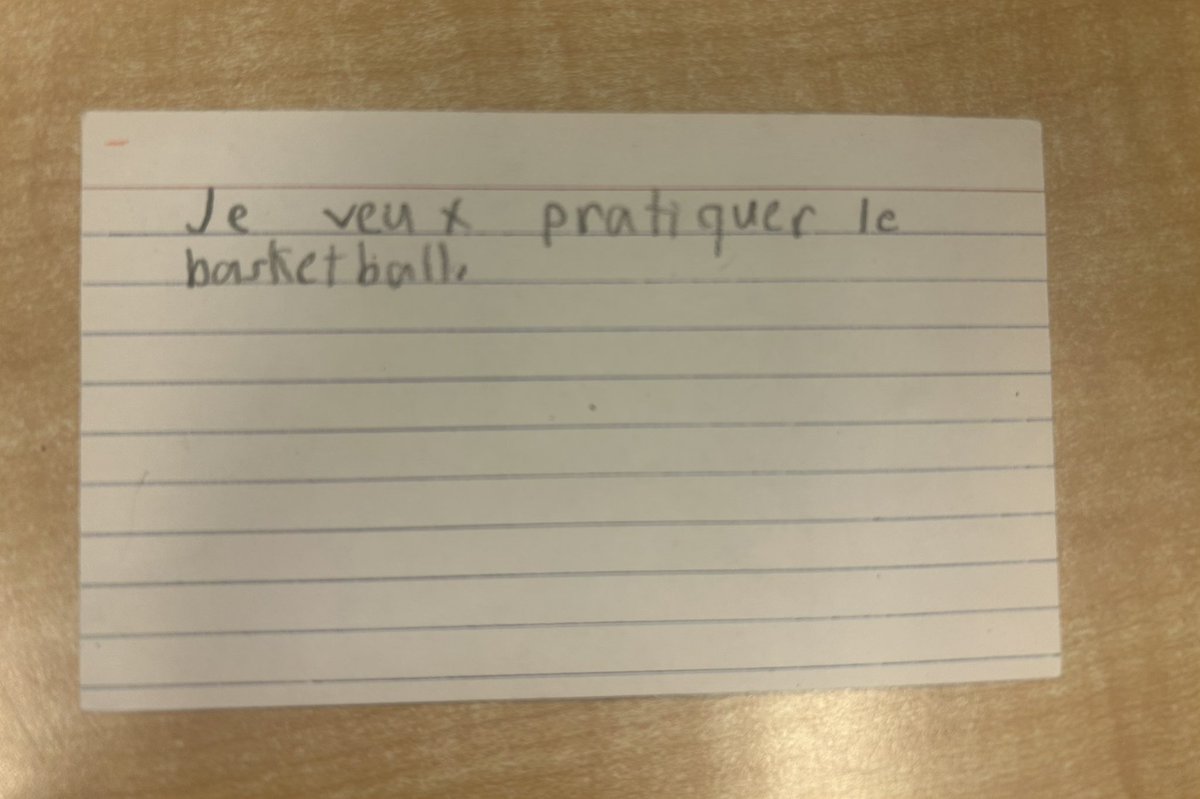 Je veux pratiquer le
basketball.